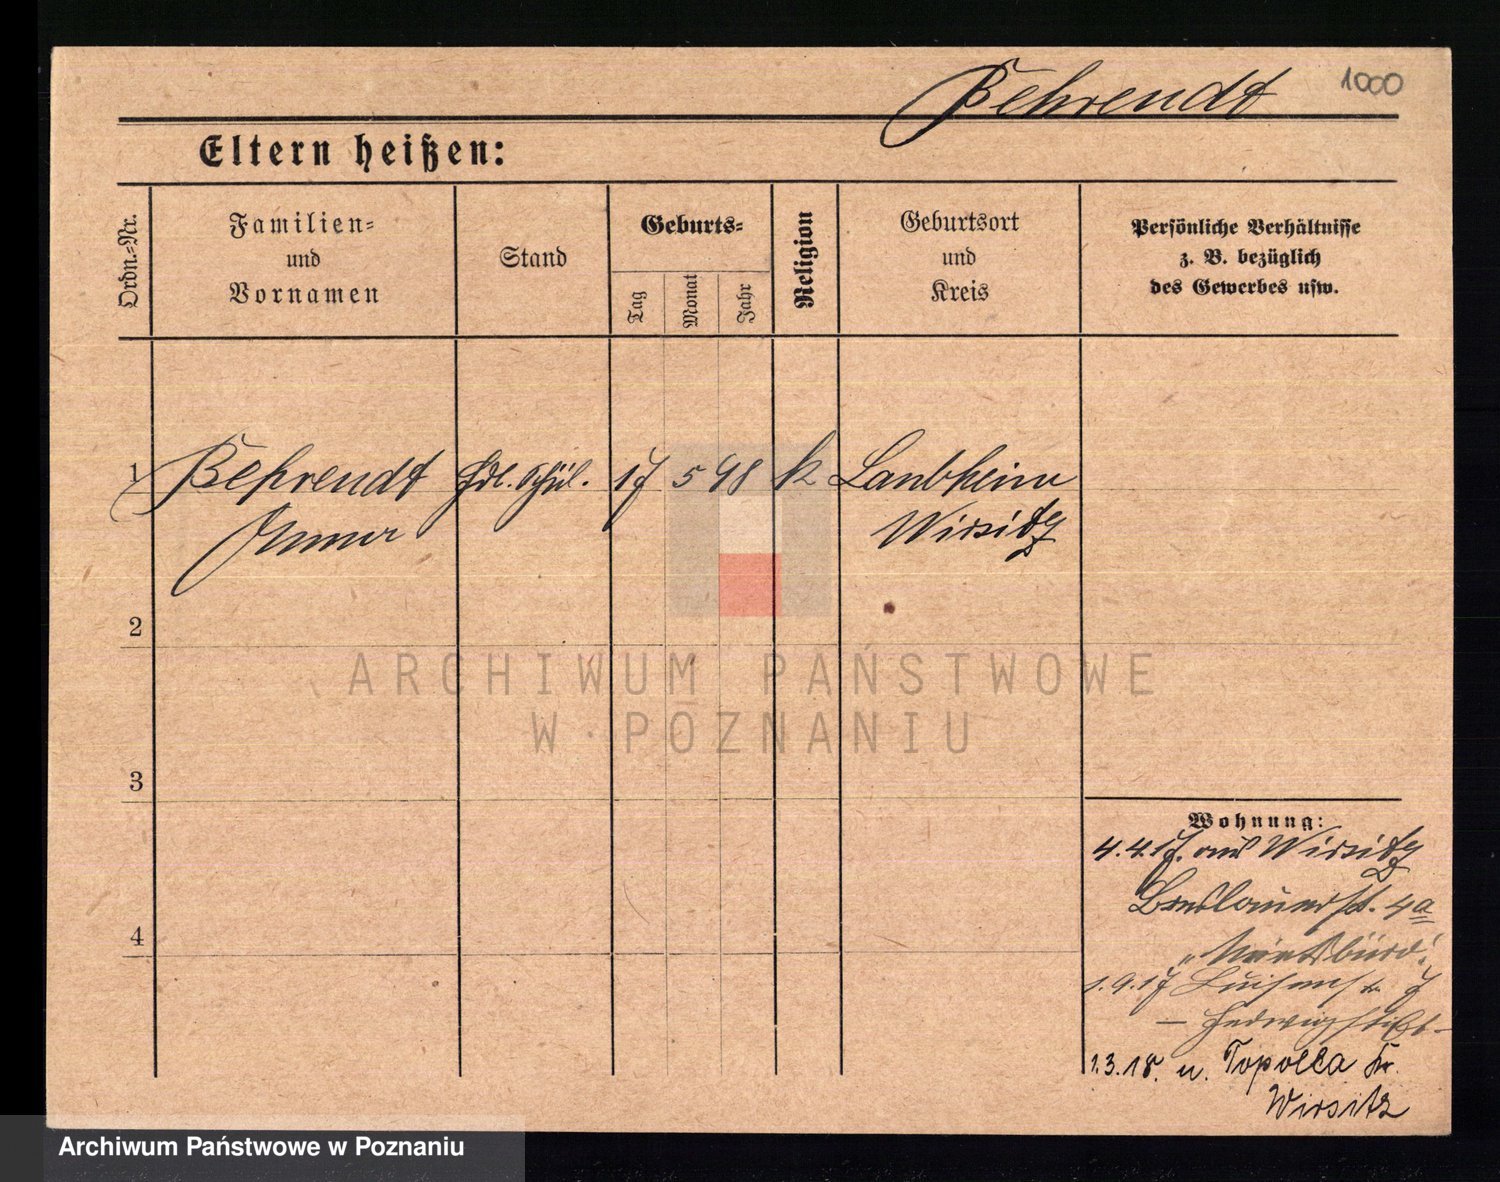 Behrendt 1000
Eltern heißen:
Ordn.-Nr.
Familien-
und
Vornamen
Stand
Geburts-
Tag
Monat
Jahr
Religion
Geburtsort
und
Kreis
Persönliche Verhältnisse
z. B. bezüglich
des Gewerbes usw.
1 Behrendt Hdl. Schül. 17 5 98 k Laubheim
Wirsitz
2
3
4
Wohnung:
4.4.17. aus Wirsitz
Breslauerst. 4a
1.9.17 Luisenstr 7
— Hedwigstift —
1.3.18. n. Topolla Kr.
Wirsitz
ARCHIWUM PAŃSTWOWE
W POZNANIU
Archiwum Państwowe w Poznaniu